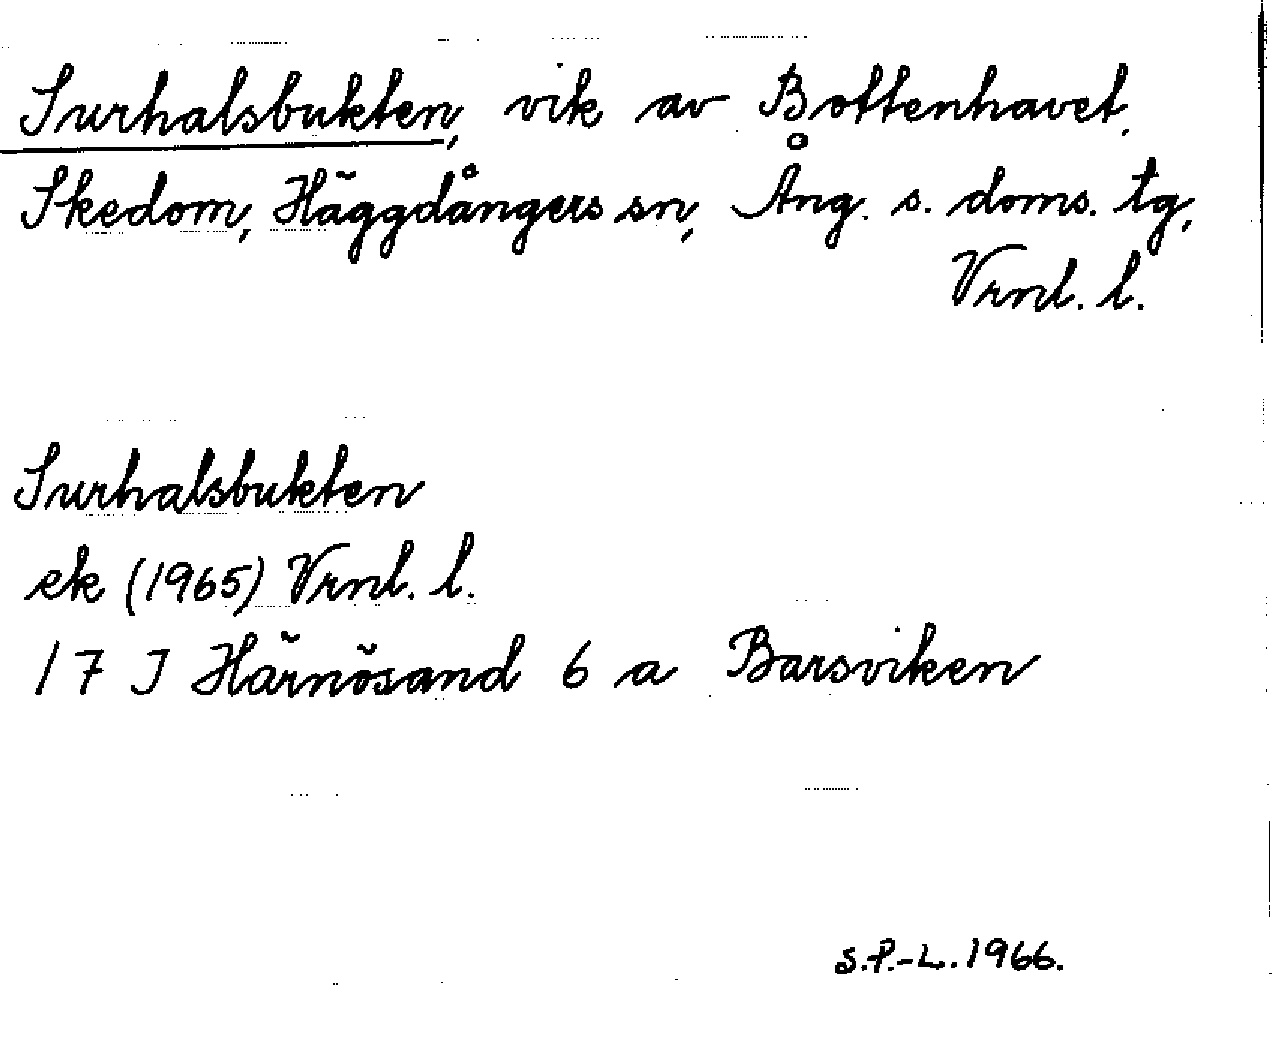 Surhalsbukten, vik av Bottenhavet,
Skedom, Häggdångers sn, Ång. s. doms. tg,
Vrnl. l.
Surhalsbukten
ek (1965) Vrnl. l.
17 J Härnösand 6 a Barsviken
S.P.-L. 1966.